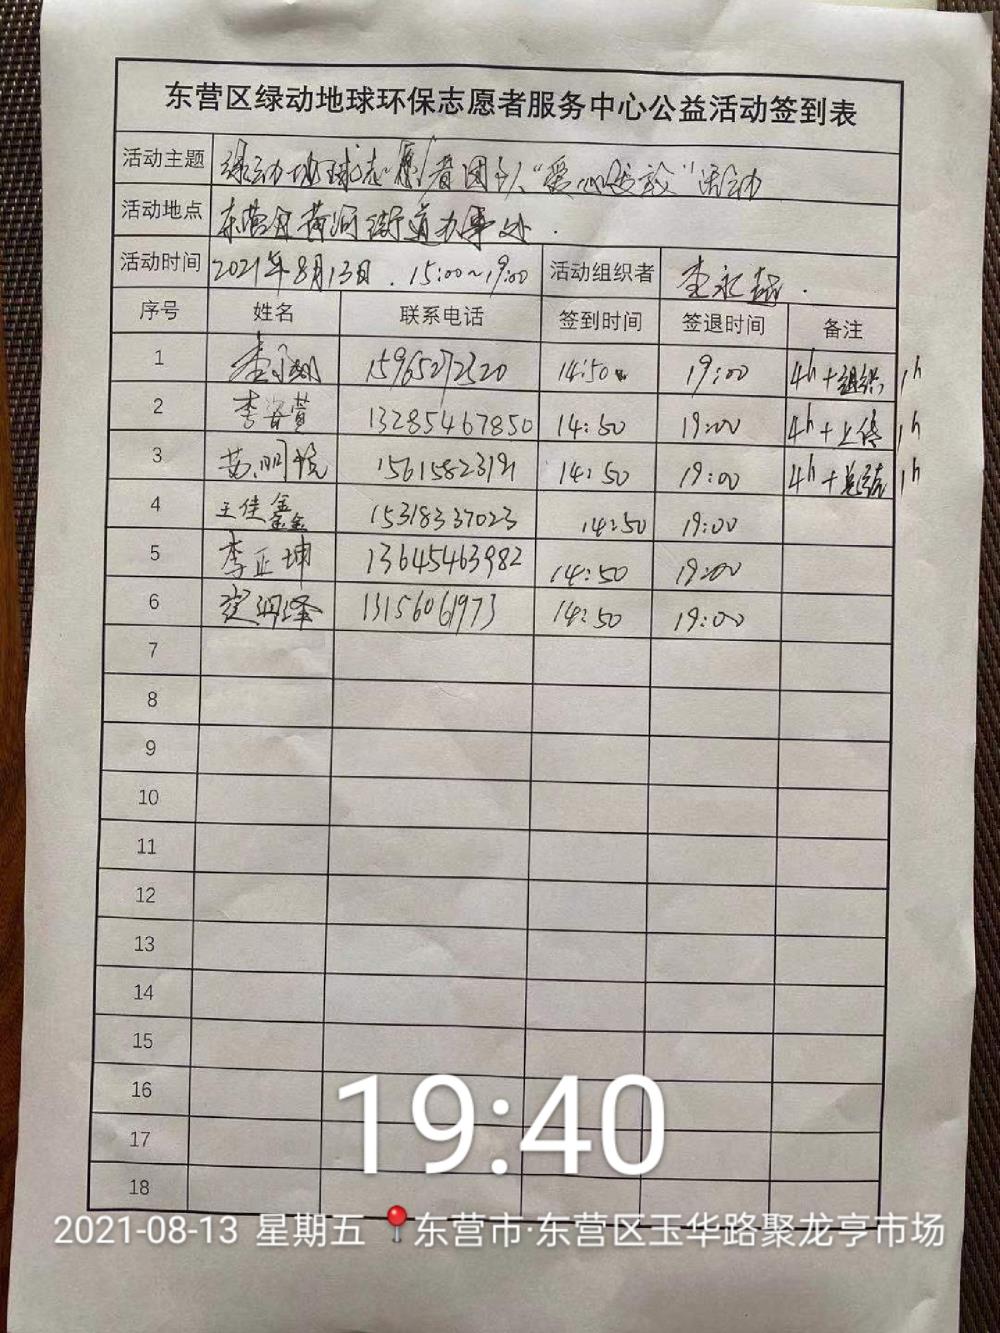 东营区绿动地球环保志愿者服务中心公益活动签到表
活动主题 绿动地球志愿者团队“爱心送教”活动
活动地点 东营区黄河街道办事处.
活动时间 2021年8月13日. 15:00~19:00 活动组织者
序号 姓名 联系电话 签到时间 签退时间 备注
1 15965272520 14:50 19:00 4h+组织1h
2 13285467850 14:50 19:00 4h+上传1h
3 黄明悦 15615823191 14:50 19:00 4h+总结1h
4 王佳鑫 15318337023 14:50 19:00
5 李正坤 13645463982 14:50 19:00
6 13156061973 14:50 19:00
7
8
9
10
11
12
13
14
15
16
17
18
19:40
2021-08-13 星期五 东营市·东营区玉华路聚龙亨市场